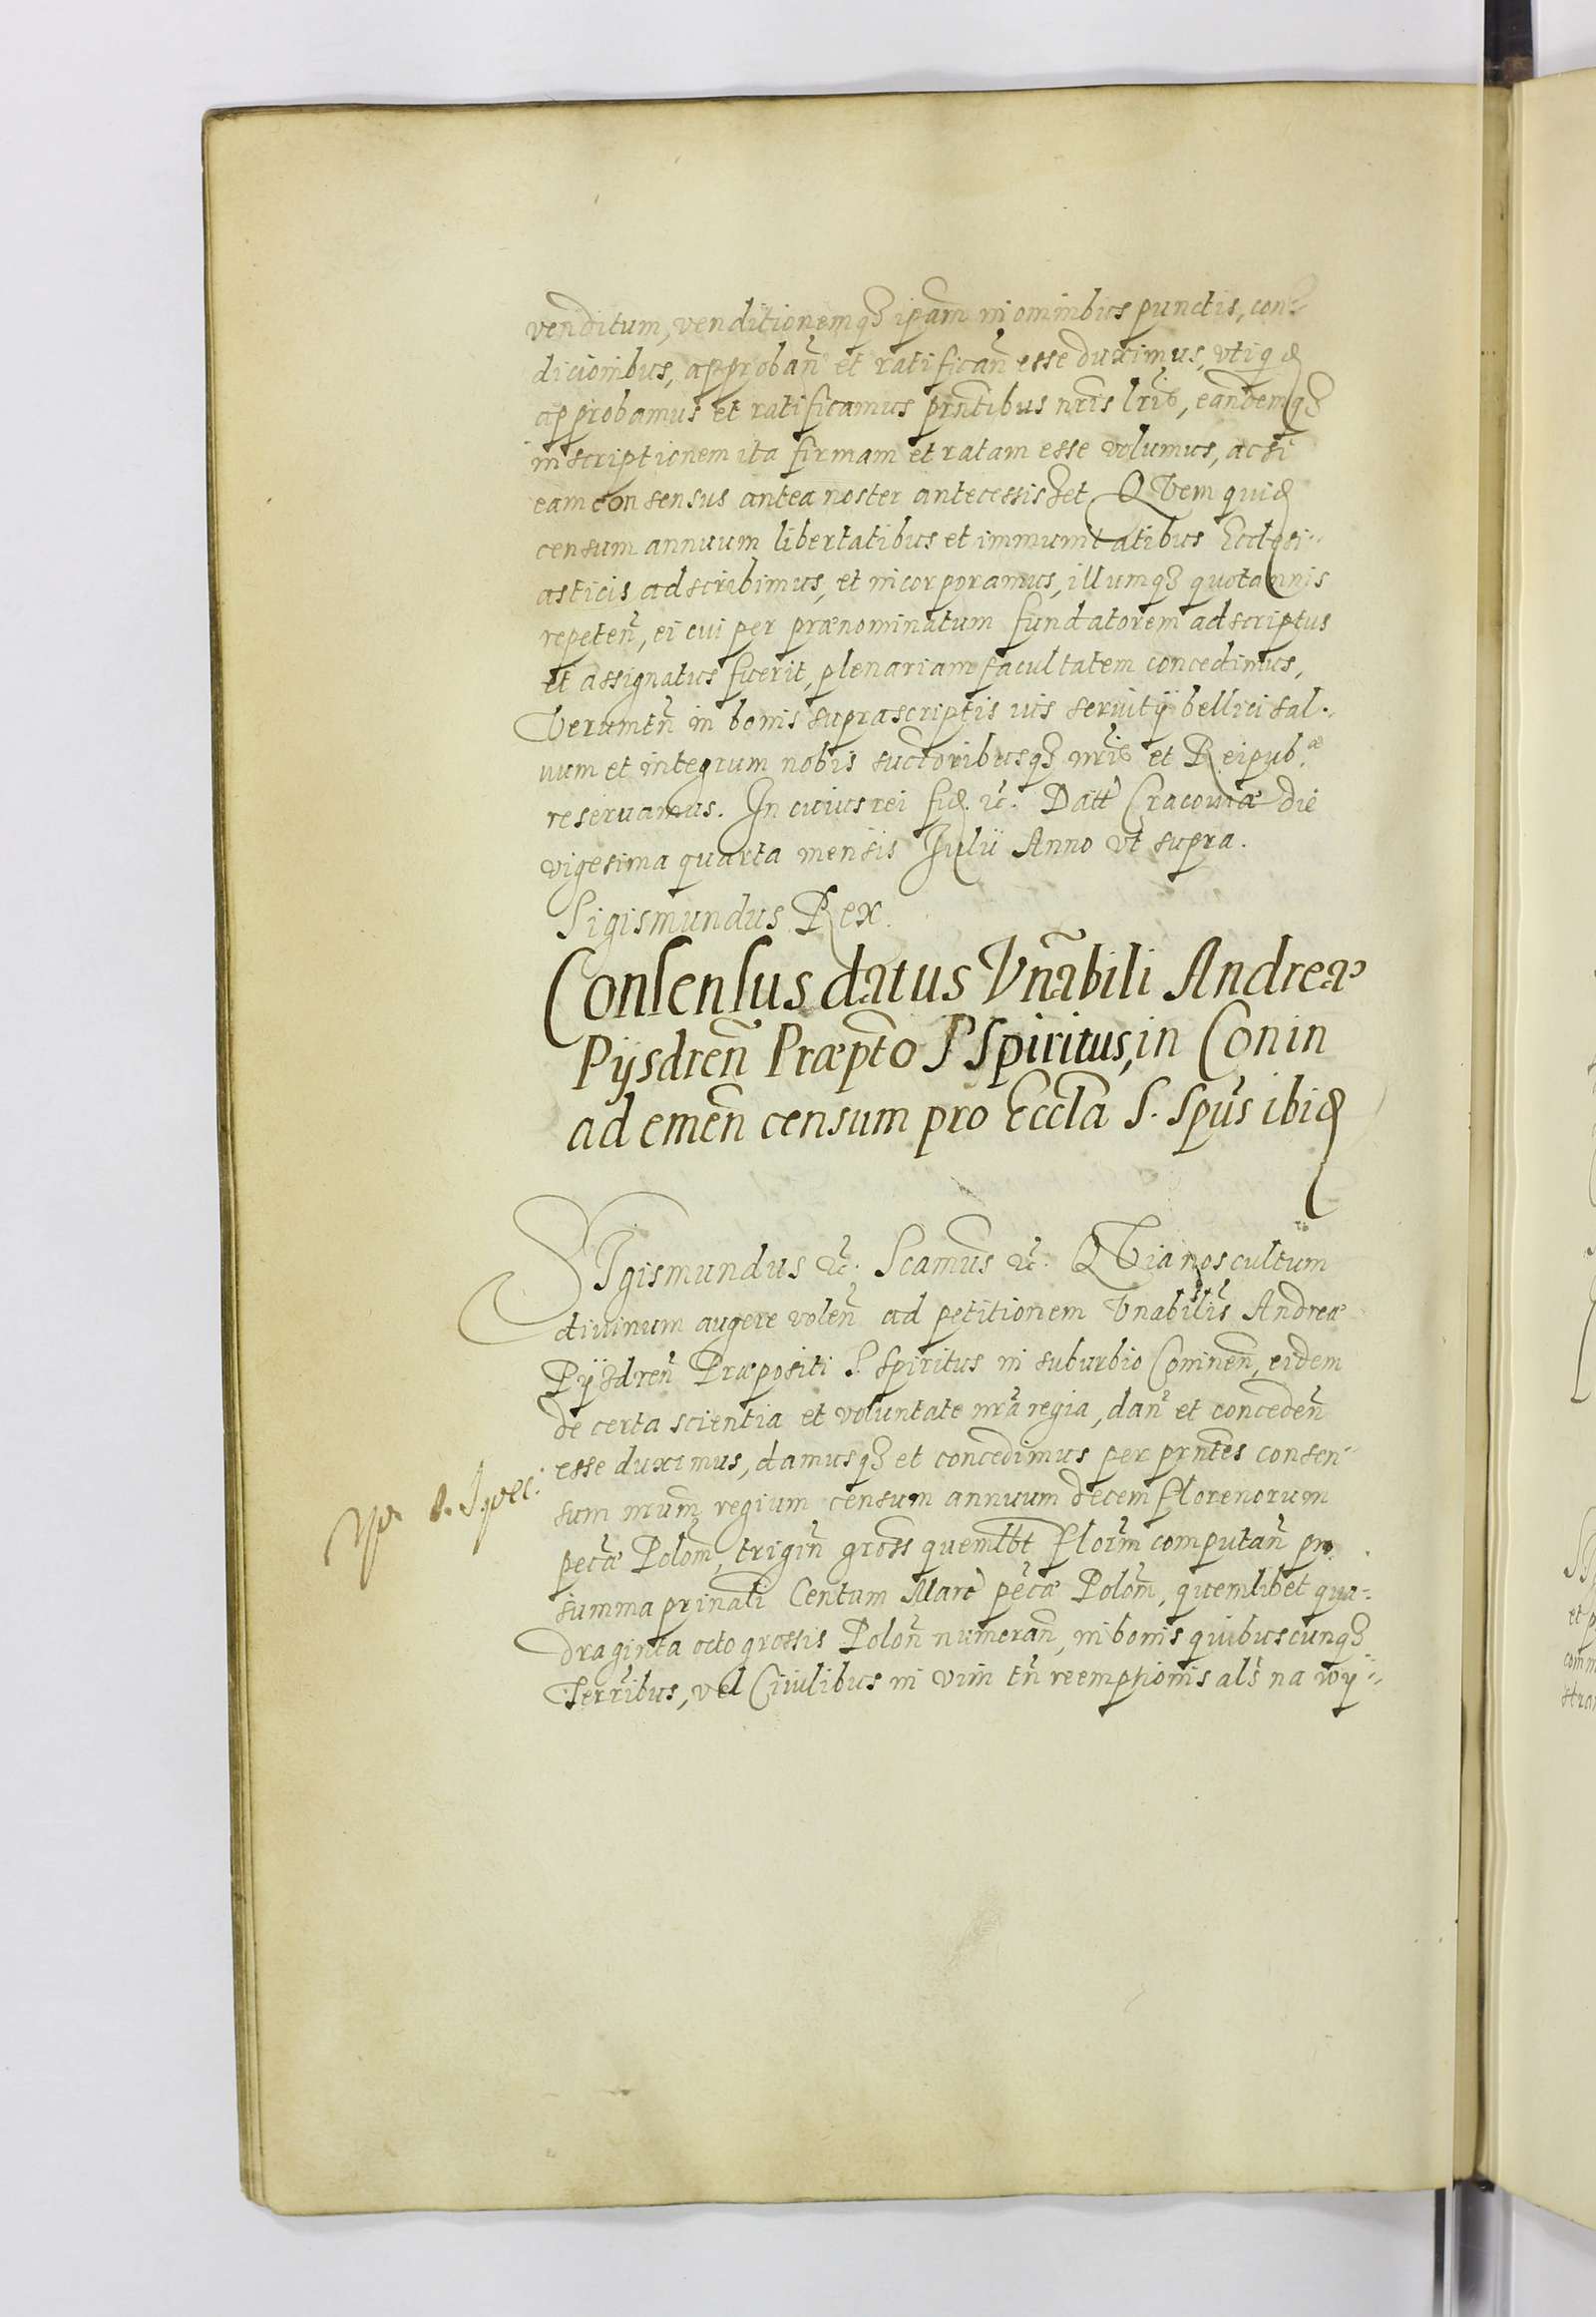 venditum, venditionemqꝫ ipam in omnibus punctis, con-
dicionibus, approbañ et ratificañ esse duximus, vti qꝺ
approbamus et ratificamus prñtibus nrĩs lrĩs, eandemqꝫ
inscriptionem ita firmam et ratam esse volumus, ac si
eam consensus antea noster antecessisset QVem quiꝺ
censum annuum libertatibus et immunitatibus Ecclesi-
asticis adscribimus, et incorporamus, illumqꝫ quotannis
repeteñ, ei cui per prænominatum fundatorem adscriptus
et assignatus fuerit, plenariam facultatem concedimus,
Verumtñ in bonis suprascriptis ius seruitÿ bellici sal-
uum et integrum nobis suctoribusqꝫ nrĩs et Reipub.æ
reseruamus. In cuius rei fiꝺ. &c. Datt Cracouiæ die
vigesima quarta mensis Julii Anno vt supra.
Sigismundus Rex.
Consensus datus Vnãbili Andreæ
Pÿsdreñ Præpto S Spiritus, in Conin
ad emeñ censum pro Eccla S. Spũs ibiꝺ
SIgismundus &c. Scamus &c. QVia nos cultum
diuinum augere voleñ ad petitionem Vnabilis Andreæ
Pÿsdreñ Præpositi S. Spiritus in suburbio Conineñ, eidem
de certa scientia et voluntate nrã regia, dañ et concedeñ
esse duximus, damusqꝫ et concedimus per prñtes consen-
sum nrum regium censum annuum decem florenorum
pecæ Polom, trigiñ gross quemlbt florm computañ pro
summa prinali Centum Marc pecæ Polom, quemlibet qua-
draginta octo grossis Poloñ numerañ, in bonis quibuscunqꝫ
Terribus, vel Ciuilibus in vim tñ reemptionis als na wy-